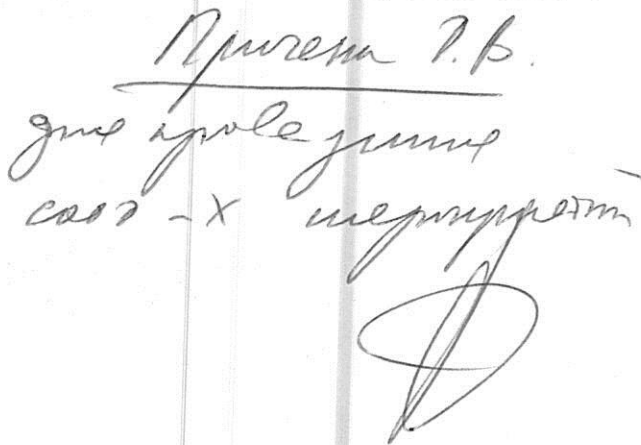 Причепа Т.В.
для проведения
соот-х мероприятий